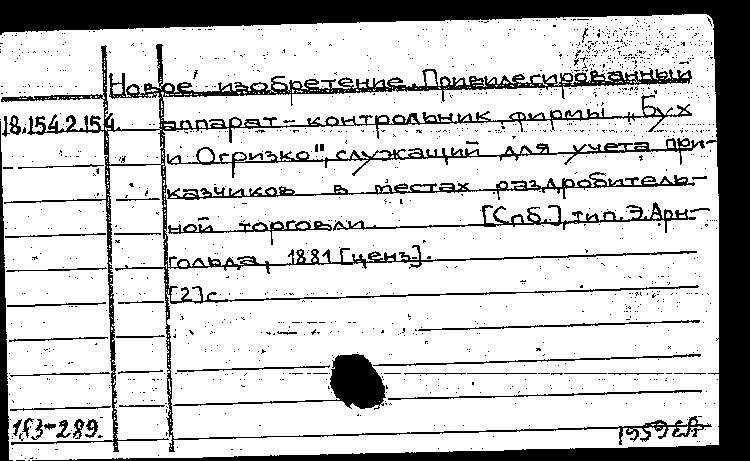 Новое изобретение. Привилегированный
18.154.2.154.
аппарат - контрольник фирмы „Бух
и Огризко", служащий для учета при-
казчиков в местах раздробитель-
ной торговли. [Спб.], тип. Э. Арн-
гольда, 1881 [ценз.].
[2] с.
183-289.
1959